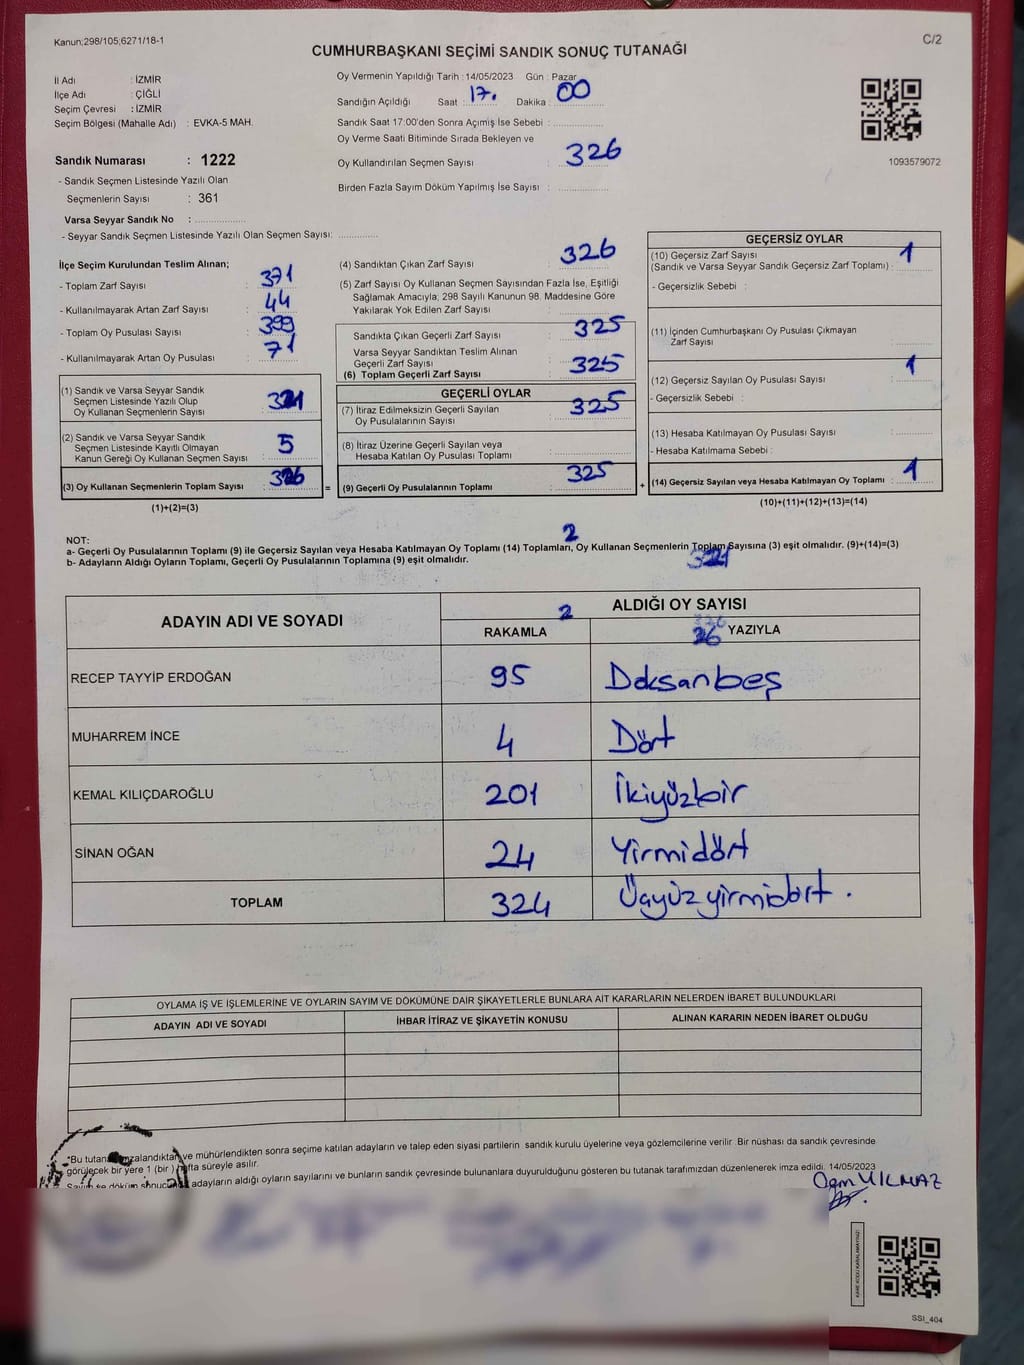 Kanun;298/105;6271/18-1
C/2
CUMHURBAŞKANI SEÇİMİ SANDIK SONUÇ TUTANAĞI
İl Adı : İZMİR
İlçe Adı : ÇİĞLİ
Seçim Çevresi : İZMİR
Seçim Bölgesi (Mahalle Adı) : EVKA-5 MAH.
Sandık Numarası : 1222
- Sandık Seçmen Listesinde Yazılı Olan
Seçmenlerin Sayısı : 361
Varsa Seyyar Sandık No : ....................
- Seyyar Sandık Seçmen Listesinde Yazılı Olan Seçmen Sayısı: ...............
Oy Vermenin Yapıldığı Tarih :14/05/2023 Gün : Pazar
Sandığın Açıldığı Saat : 17. Dakika : 00
Sandık Saat 17:00'den Sonra Açımiş İse Sebebi : ....................
Oy Verme Saati Bitiminde Sırada Bekleyen ve
Oy Kullandırılan Seçmen Sayısı : 326
Birden Fazla Sayım Döküm Yapılmış İse Sayısı : ....................
1093579072
İlçe Seçim Kurulundan Teslim Alınan;
- Toplam Zarf Sayısı : 371
- Kullanılmayarak Artan Zarf Sayısı : 44
- Toplam Oy Pusulası Sayısı : 399
- Kullanılmayarak Artan Oy Pusulası : 71
(1) Sandık ve Varsa Seyyar Sandık
Seçmen Listesinde Yazılı Olup
Oy Kullanan Seçmenlerin Sayısı : 321
(2) Sandık ve Varsa Seyyar Sandık
Seçmen Listesinde Kayıtlı Olmayan
Kanun Gereği Oy Kullanan Seçmen Sayısı : 5
(3) Oy Kullanan Seçmenlerin Toplam Sayısı : 326
(1)+(2)=(3)
(4) Sandıktan Çıkan Zarf Sayısı : 326
(5) Zarf Sayısı Oy Kullanan Seçmen Sayısından Fazla İse, Eşitliği
Sağlamak Amacıyla; 298 Sayılı Kanunun 98. Maddesine Göre
Yakılarak Yok Edilen Zarf Sayısı :
Sandıkta Çıkan Geçerli Zarf Sayısı : 325
Varsa Seyyar Sandıktan Teslim Alınan
Geçerli Zarf Sayısı
(6) Toplam Geçerli Zarf Sayısı : 325
GEÇERLİ OYLAR
(7) İtiraz Edilmeksizin Geçerli Sayılan
Oy Pusulalarının Sayısı : 325
(8) İtiraz Üzerine Geçerli Sayılan veya
Hesaba Katılan Oy Pusulası Toplamı :
= (9) Geçerli Oy Pusulalarının Toplamı : 325 +
GEÇERSİZ OYLAR
(10) Geçersiz Zarf Sayısı 1
(Sandık ve Varsa Seyyar Sandık Geçersiz Zarf Toplamı) :
- Geçersizlik Sebebi :
(11) İçinden Cumhurbaşkanı Oy Pusulası Çıkmayan
Zarf Sayısı :
(12) Geçersiz Sayılan Oy Pusulası Sayısı : 1
- Geçersizlik Sebebi :
(13) Hesaba Katılmayan Oy Pusulası Sayısı :
- Hesaba Katılmama Sebebi :
(14) Geçersiz Sayılan veya Hesaba Katılmayan Oy Toplamı : 1
(10)+(11)+(12)+(13)=(14)
NOT:
2
a- Geçerli Oy Pusulalarının Toplamı (9) ile Geçersiz Sayılan veya Hesaba Katılmayan Oy Toplamı (14) Toplamları, Oy Kullanan Seçmenlerin Toplam Sayısına (3) eşit olmalıdır. (9)+(14)=(3)
b- Adayların Aldığı Oyların Toplamı, Geçerli Oy Pusulalarının Toplamına (9) eşit olmalıdır.
321
ADAYIN ADI VE SOYADI
ALDIĞI OY SAYISI
2
RAKAMLA
326
26 YAZIYLA
RECEP TAYYİP ERDOĞAN 95 Doksanbeş
MUHARREM İNCE 4 Dört
KEMAL KILIÇDAROĞLU 201 İkiyüzbir
SİNAN OĞAN 24 Yirmidört
TOPLAM 324 Üçyüzyirmidört.
OYLAMA İŞ VE İŞLEMLERİNE VE OYLARIN SAYIM VE DÖKÜMÜNE DAİR ŞİKAYETLERLE BUNLARA AİT KARARLARIN NELERDEN İBARET BULUNDUKLARI
ADAYIN ADI VE SOYADI
İHBAR İTİRAZ VE ŞİKAYETİN KONUSU
ALINAN KARARIN NEDEN İBARET OLDUĞU
*Bu tutanak imzalandıktan ve mühürlendikten sonra seçime katılan adayların ve talep eden siyasi partilerin sandık kurulu üyelerine veya gözlemcilerine verilir. Bir nüshası da sandık çevresinde
görülecek bir yere 1 (bir) hafta süreyle asılır.
adayların aldığı oyların sayılarını ve bunların sandık çevresinde bulunanlara duyurulduğunu gösteren bu tutanak tarafımızdan düzenlenerek imza edildi. 14/05/2023
YILMAZ
SSİ_404